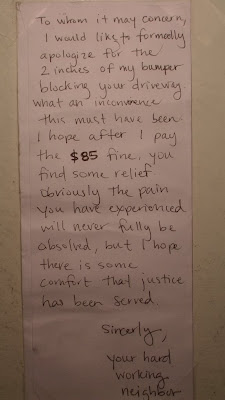 To whom it may concern,
I would like to formally
apologize for the
2 inches of my bumper
blocking your driveway.
what an inconvenience
this must have been.
I hope after I pay
the $85 fine, you
find some relief.
Obviously the pain
you have experienced
will never fully be
absolved, but I hope
there is some
comfort that justice
has been served.
Sincerly,
your hard
working
neighbour